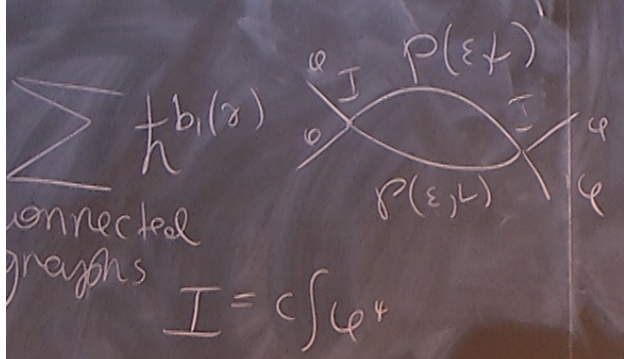 ∑ ħ^{b₁(γ)}
connected
graphs
φ I P(ε,L) I φ
φ P(ε,L) φ
I = c∫φ⁴